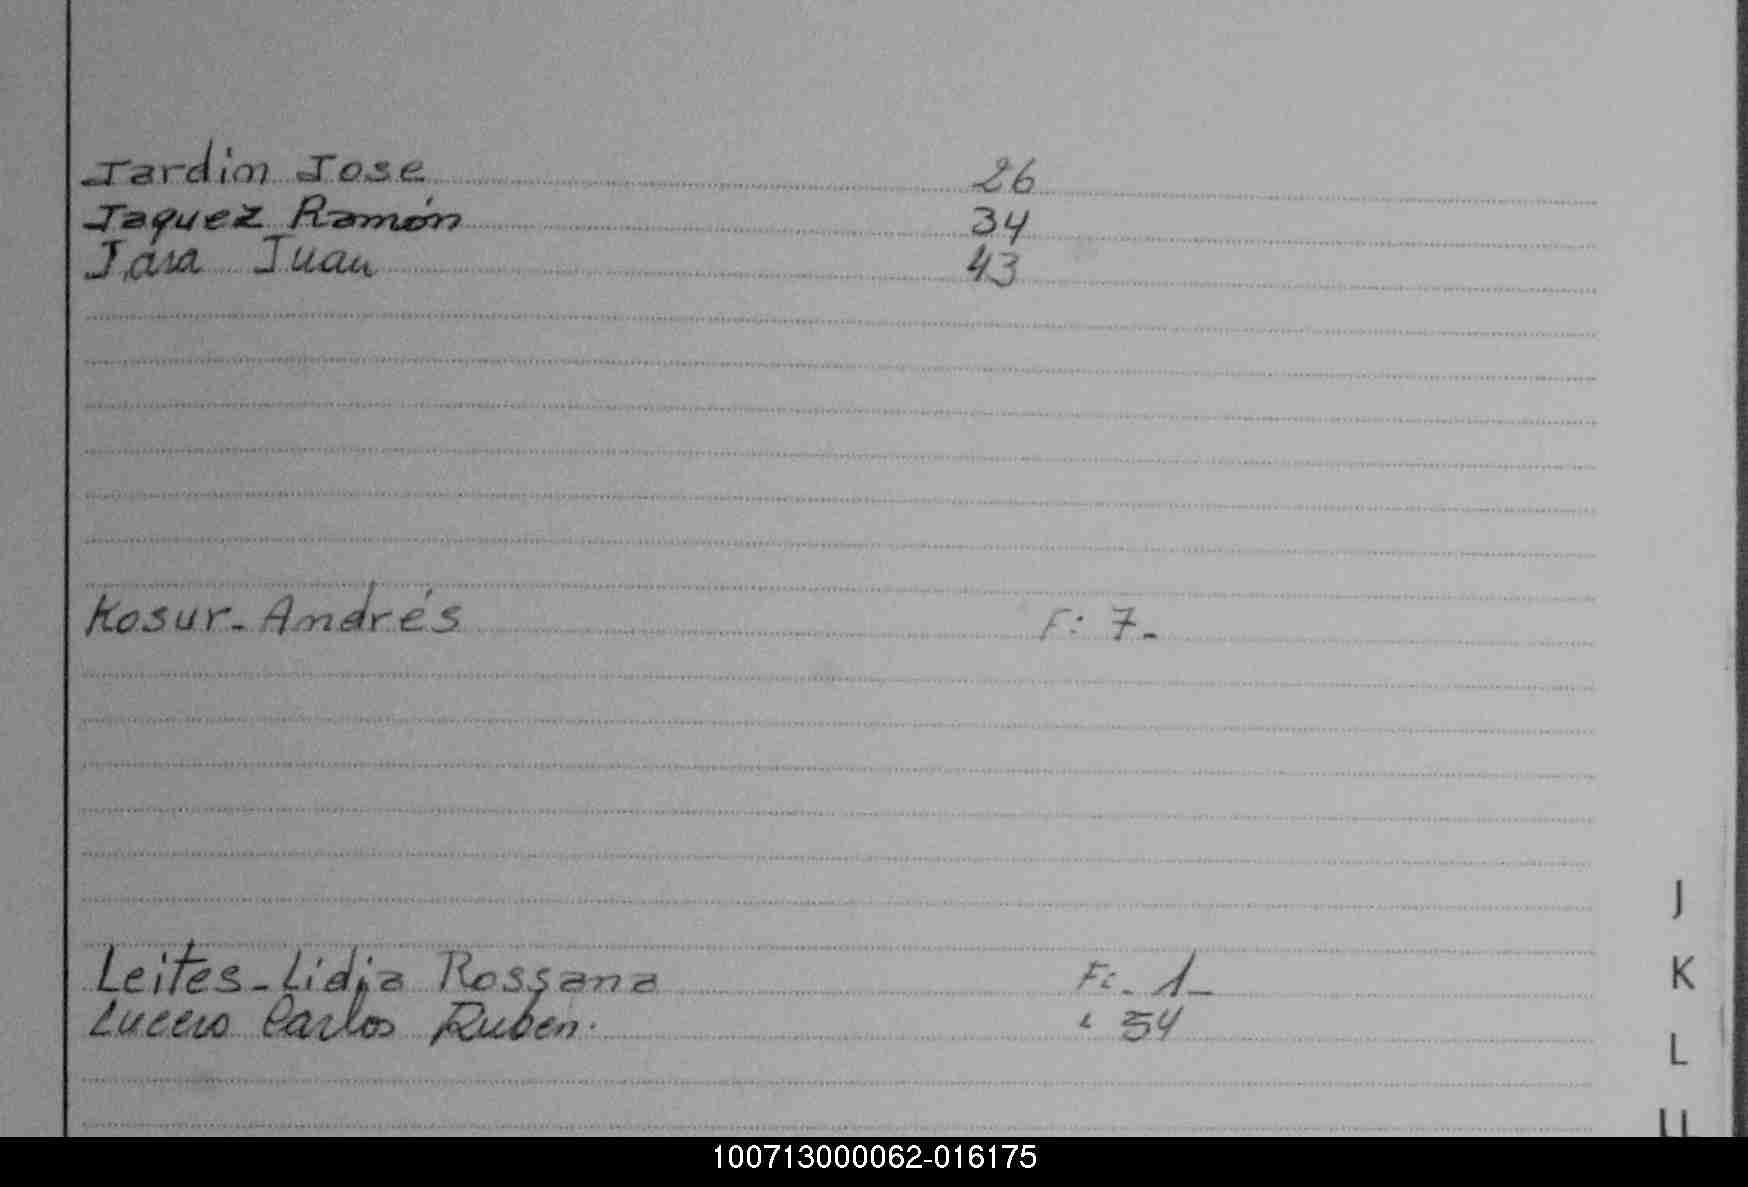 Jardim Jose 26
Jaquez Ramón 34
Jara Juan 43
Kosur- Andrés F: 7-
Leites- Lidia Rossana F: - 1-
Lucero Carlos Ruben. " 54
J
K
L
100713000062-016175